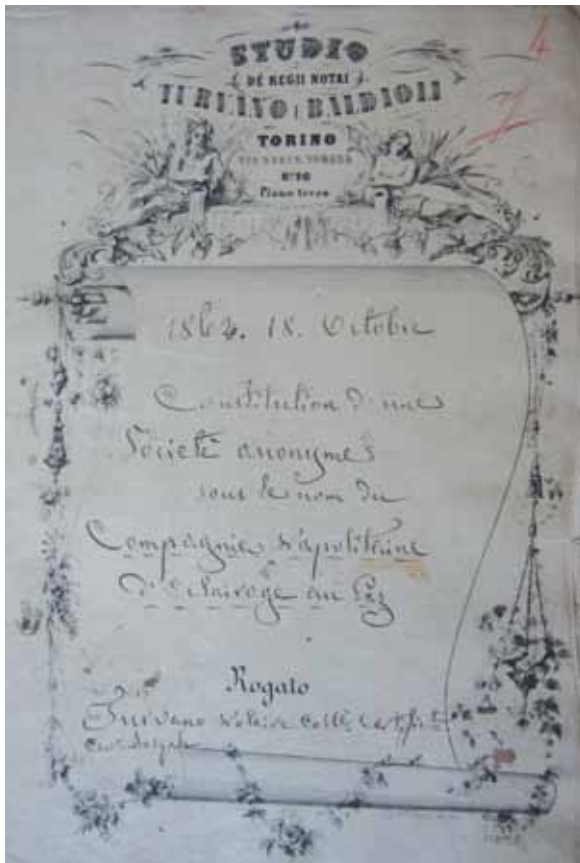 STUDIO
DE REGII NOTAI
TURVANO E BALDIOLI
TORINO
N° 10
Piano terzo
4
1862. 18. Octobre
Constitution d'une
Société anonyme
sous le nom de
Compagnie Napolitaine
d'Eclairage au Gaz
Rogato
Turvano